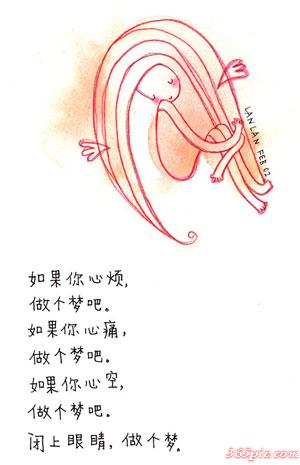 LANLAN FEB 02
如果你心烦,
做个梦吧。
如果你心痛,
做个梦吧。
如果你心空,
做个梦吧。
闭上眼睛,做个梦。
365pic.com